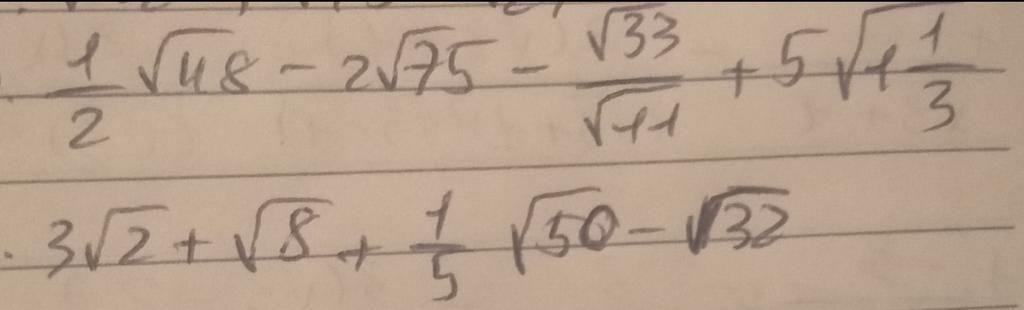 1/2 √48 - 2√75 - √33/√11 + 5√1 1/3
. 3√2 + √8 + 1/5 √50 - √32